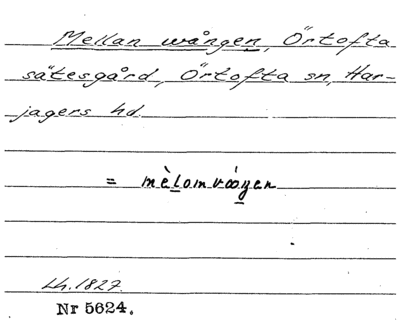 Mellan wången, Örtofta
sätesgård, Örtofta sn, Har-
jagers hd.
= mèlomvåŋen
Lh. 1827.
Nr 5624.